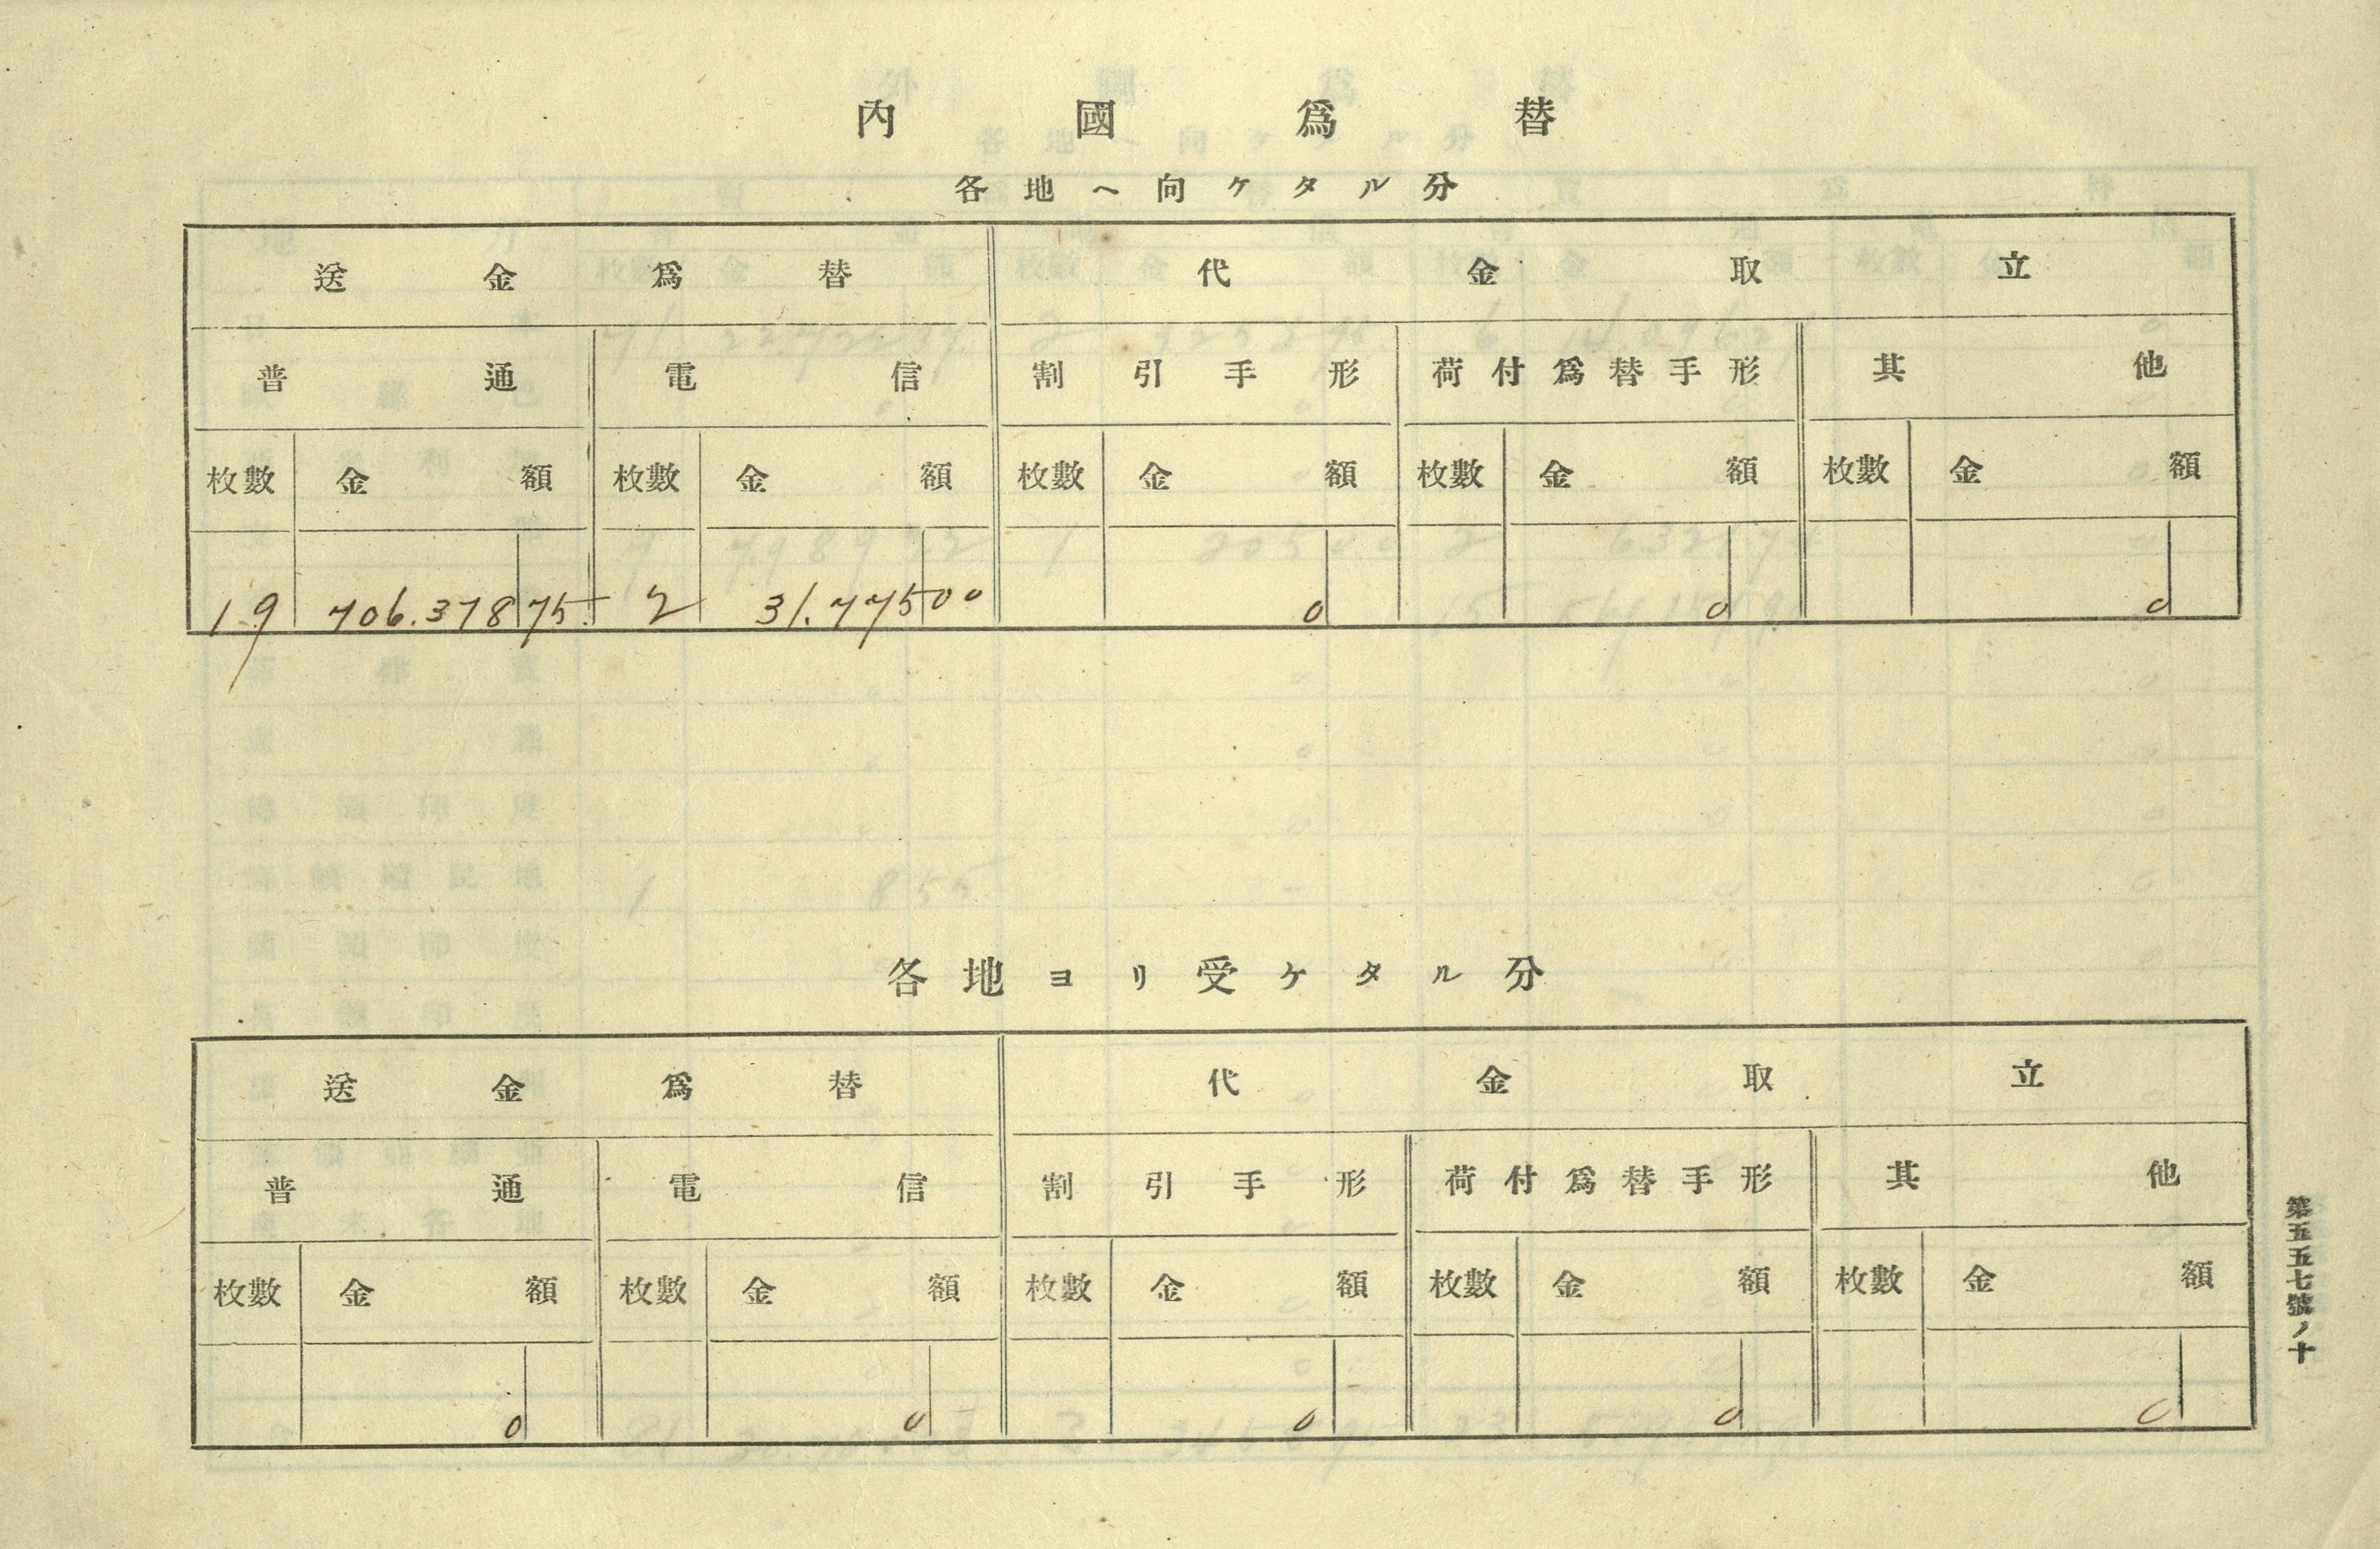 內國爲替
各地ヘ向ケタル分
送金爲替 代金取立
普通 電信 割引手形 荷付爲替手形 其他
枚數 金額 枚數 金額 枚數 金額 枚數 金額 枚數 金額
19 706.378 75 2 31.775 00 0 0 0
各地ヨリ受ケタル分
送金爲替 代金取立
普通 電信 割引手形 荷付爲替手形 其他
枚數 金額 枚數 金額 枚數 金額 枚數 金額 枚數 金額
0 0 0 0 0
第五五七號ノ十